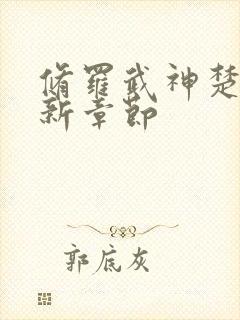 脩羅武神楚
新章節
郭底灰